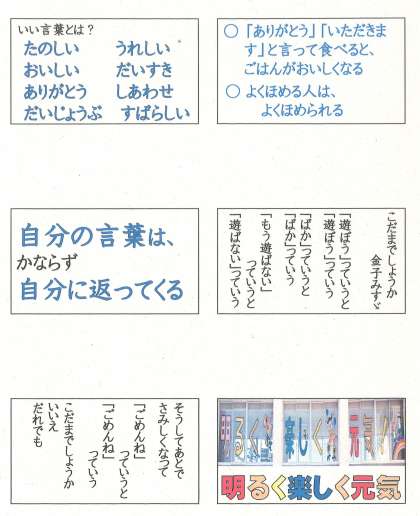 いい言葉とは？
たのしい　うれしい
おいしい　だいすき
ありがとう　しあわせ
だいじょうぶ　すばらしい
○「ありがとう」「いただきま
す」と言って食べると、
ごはんがおいしくなる
○よくほめる人は、
よくほめられる
自分の言葉は、
かならず
自分に返ってくる
こだまでしょうか
金子みすゞ
「遊ぼう」っていうと
「遊ぼう」っていう
「ばか」っていうと
「ばか」っていう
「もう遊ばない」
っていうと
「遊ばない」っていう
そうしてあとで
さみしくなって
「ごめんね」っていうと
「ごめんね」っていう
こだまでしょうか
いいえ
だれでも
明るく楽しく元気
明るく楽しく元気